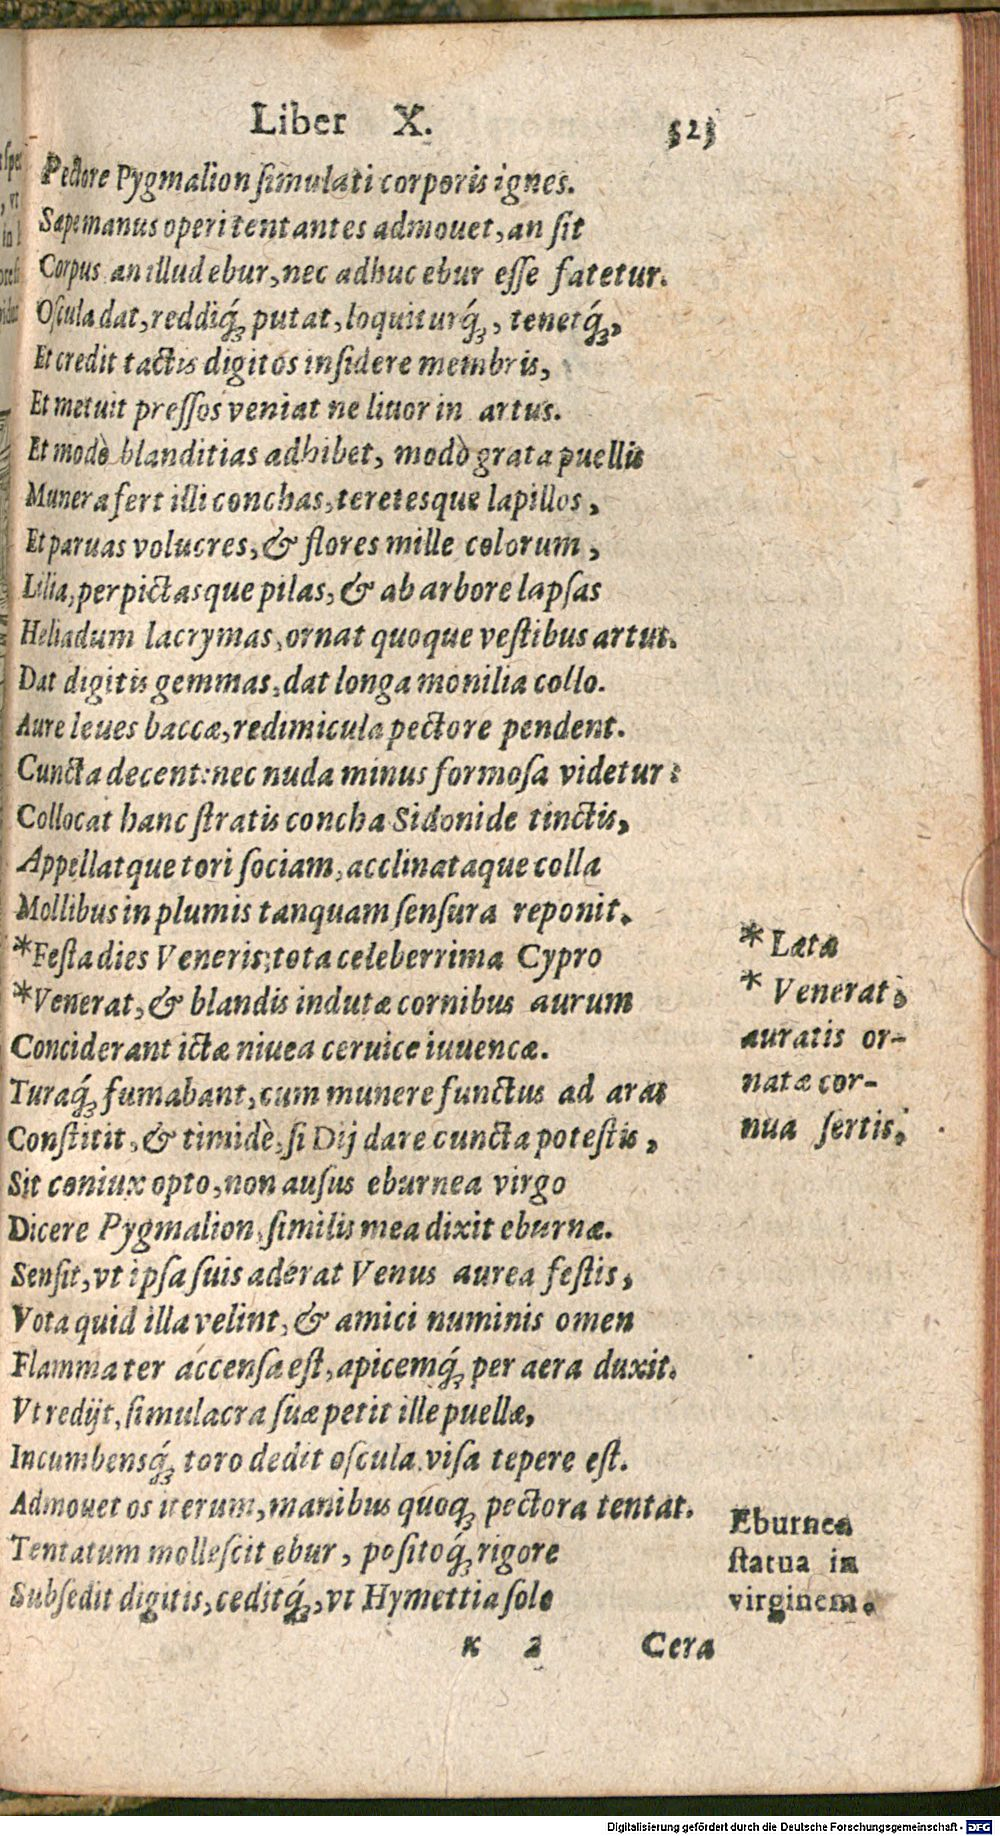 Liber X. 523
Pectore Pygmalion ſimulati corporis ignes.
Sæpe manus operi tentantes admouet, an ſit
Corpus an illud ebur, nec adhuc ebur eſſe fatetur.
Oſcula dat, reddiq́; putat, loquiturq́;, tenetq́;,
Et credit tactis digitos inſidere membris,
Et metuit preſſos veniat ne liuor in artus.
Et modò blanditias adhibet, modò grata puellis
Munera fert illi conchas, teretesque lapillos,
Et paruas volucres, & flores mille colorum,
Lilia, perpictasque pilas, & ab arbore lapſas
Heliadum lacrymas, ornat quoque veſtibus artus.
Dat digitis gemmas, dat longa monilia collo.
Aure leues baccæ, redimicula pectore pendent.
Cuncta decent: nec nuda minus formoſa videtur:
Collocat hanc ſtratis concha Sidonide tinctis,
Appellatque tori ſociam, acclinataque colla
Mollibus in plumis tanquam ſenſura reponit.
*Feſta dies Veneris, tota celeberrima Cypro
*Venerat, & blandis indutæ cornibus aurum
Conciderant ictæ niuea ceruice iuuencæ.
Turaq́; fumabant, cum munere functus ad aras
Conſtitit, & timidè, ſi Dij dare cuncta poteſtis,
Sit coniux opto, non auſus eburnea virgo
Dicere Pygmalion, ſimilis mea dixit eburnæ.
Senſit, vt ipſa ſuis aderat Venus aurea feſtis,
Vota quid illa velint, & amici numinis omen
Flamma ter accenſa eſt, apicemq́; per aera duxit.
Vt redijt, ſimulacra ſuæ petit ille puellæ,
Incumbensq́; toro dedit oſcula. viſa tepere eſt.
Admouet os iterum, manibus quoq; pectora tentat.
Tentatum molleſcit ebur, poſitoq́; rigore
Subſedit digitis, ceditq́;, vt Hymettia ſole
K 2 Cera
* Læta
* Venerat;
auratis or-
natæ cor-
nua ſertis.
Eburnea
ſtatua in
virginem.
Digitalisierung gefördert durch die Deutsche Forschungsgemeinschaft - DFG